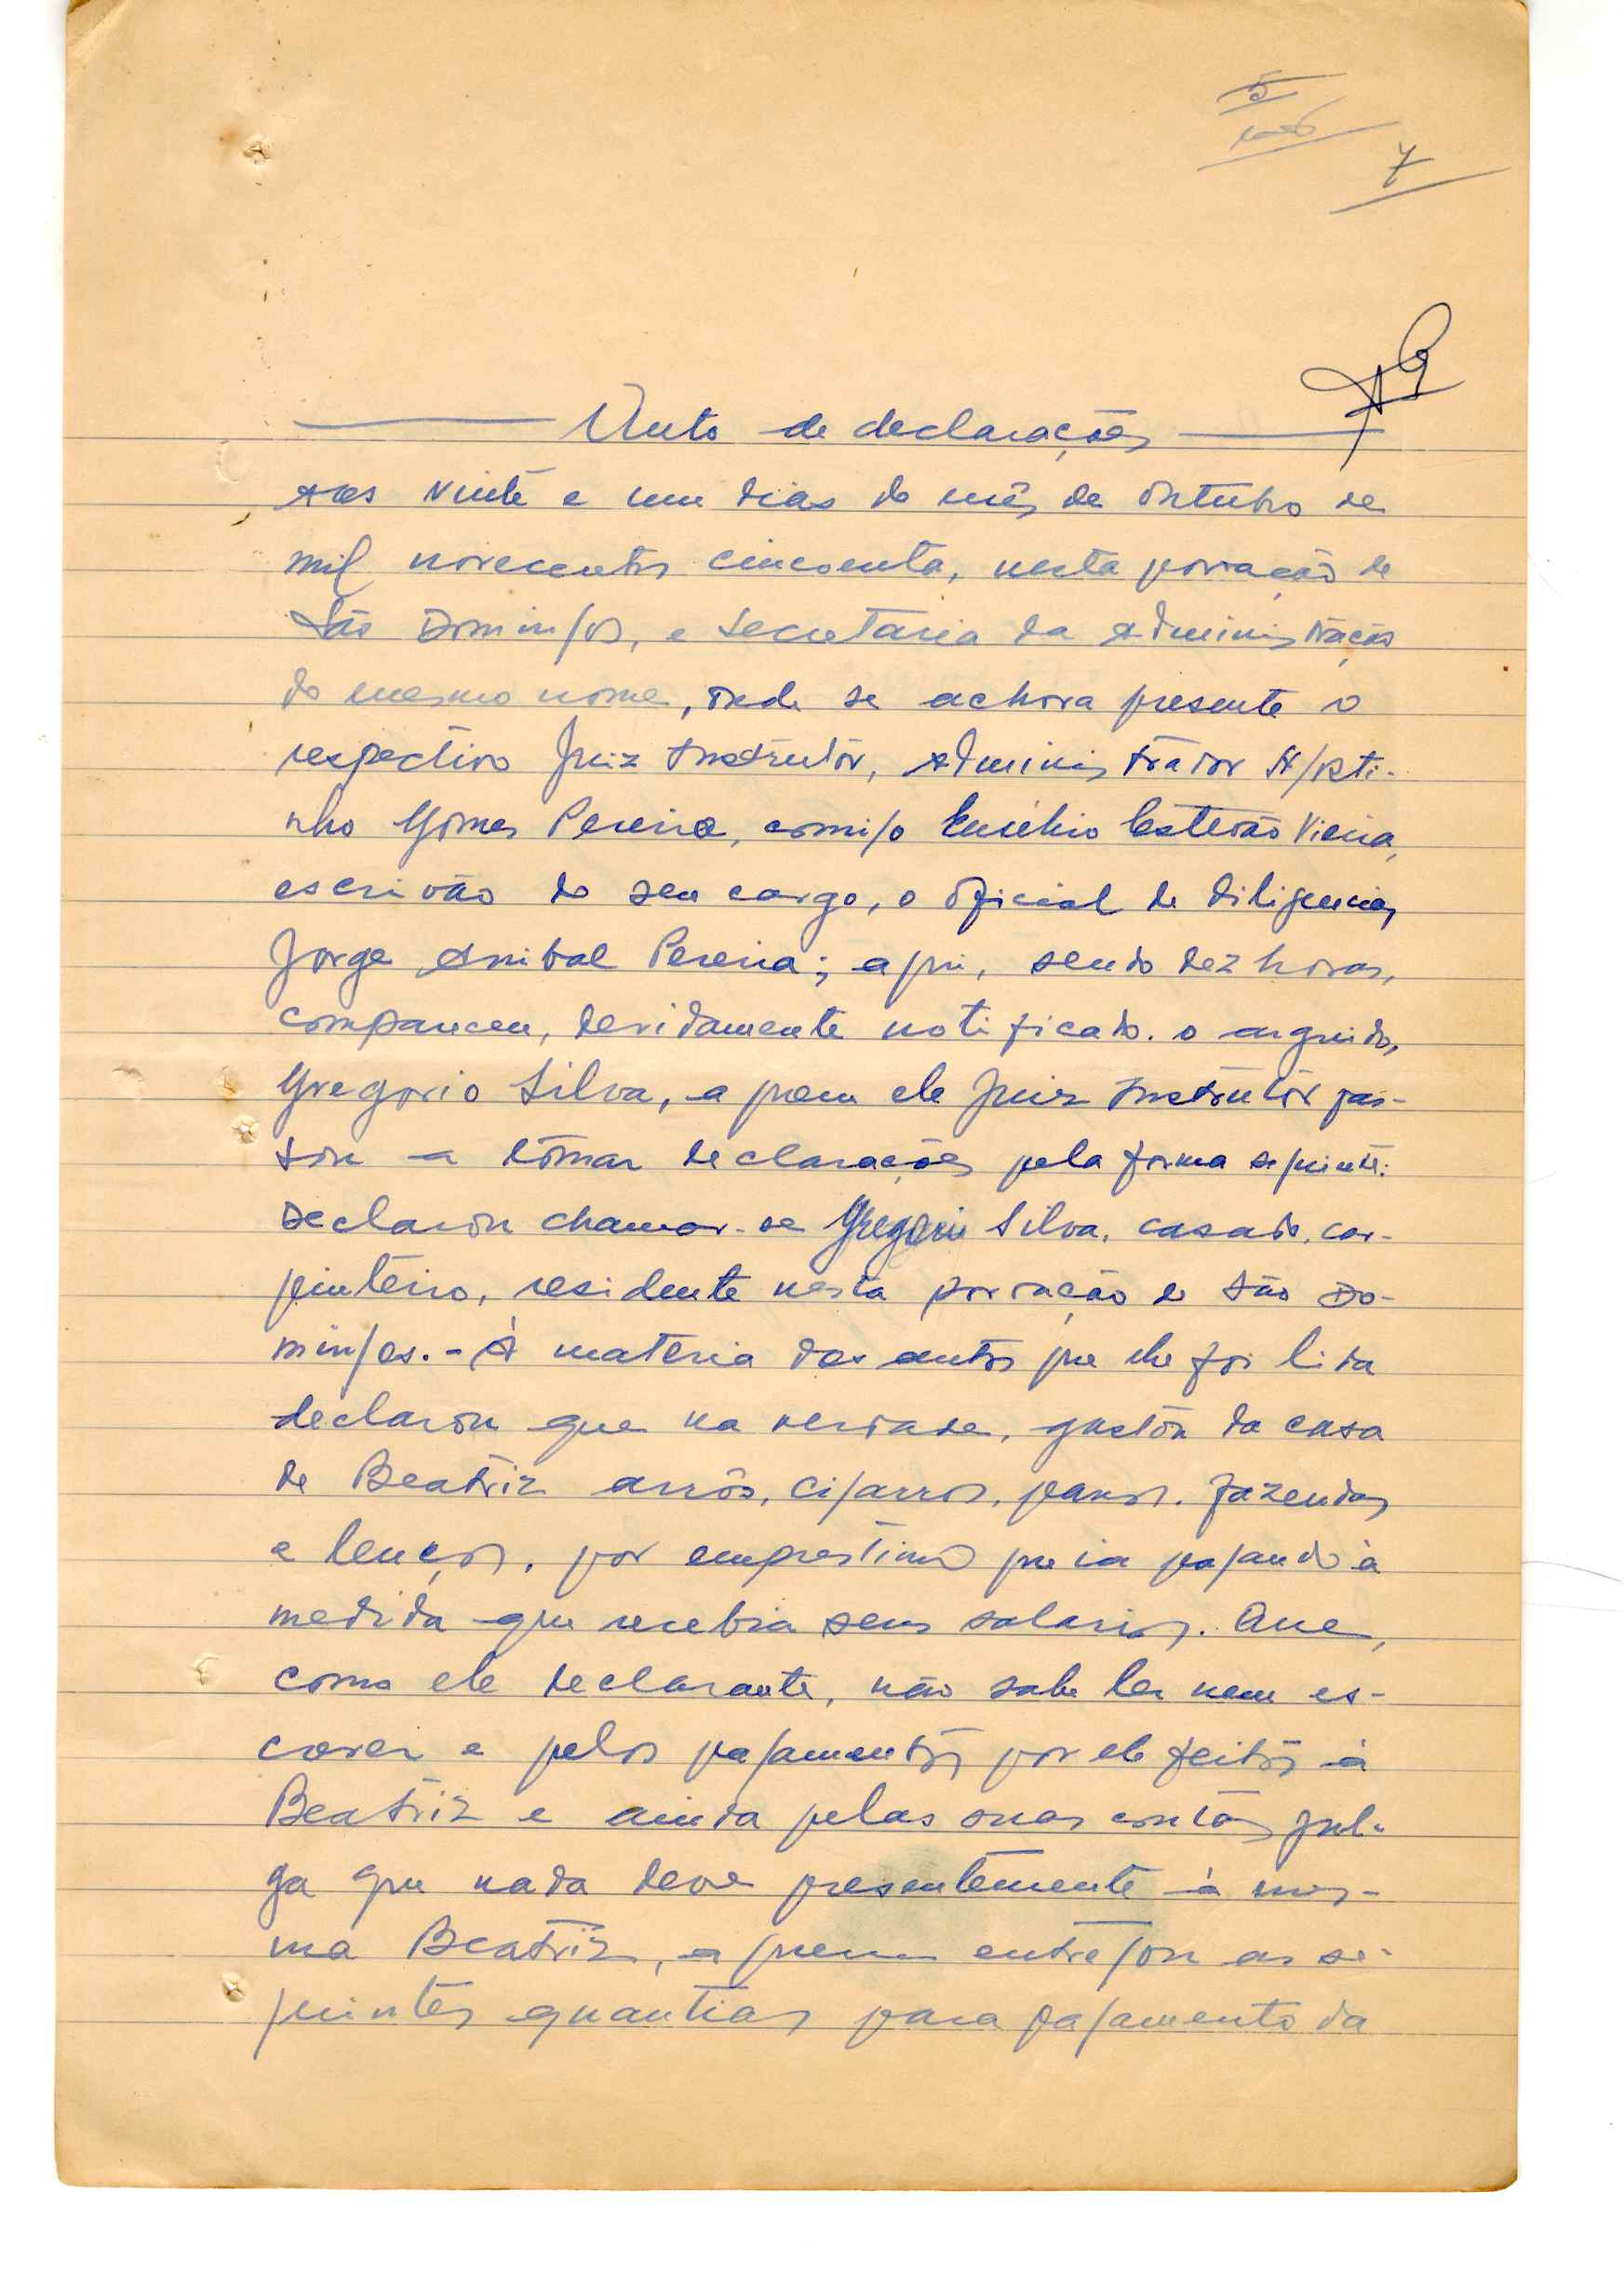 5
7
Auto de declarações
Aos vinte e um dias do mês de Outubro de
mil novecentos cincoenta, nesta povoação de
São Domingos, e Secretaria da Administração
do mesmo nome, onde se achava presente o
respectivo Juiz Instrutôr, Administrador Agosti-
nho Gomes Pereira, comigo Eusébio Estevão Vieira,
escrivão do seu cargo, o oficial de diligencias
Jorge Anibal Pereira; aqui, sendo dez horas,
compareceu, devidamente notificado. o arguido,
Gregorio Silva, a quem ele Juiz Instrutôr pas-
sou a tômar declarações pela forma seguinte:
Declarou chamar-se Gregorio Silva, casado, car-
pinteiro, residente nesta povoação de São Do-
mingos. - À materia dos autos que lhe foi lida
declarou que na verdade, gastou da casa
de Beatriz arrôs, cigarros, panos. fazendas
e lenços, por emprestimo que ia pagando à
medida que recebia seus salarios. Que,
como ele declarante, não sabe ler nem es-
crever e pelos pagamentos por ele feitos à
Beatriz e ainda pelas suas contas jul-
ga que nada deve presentemente à mes-
ma Beatriz, a quem entregou as se-
guintes quantias para pagamento da